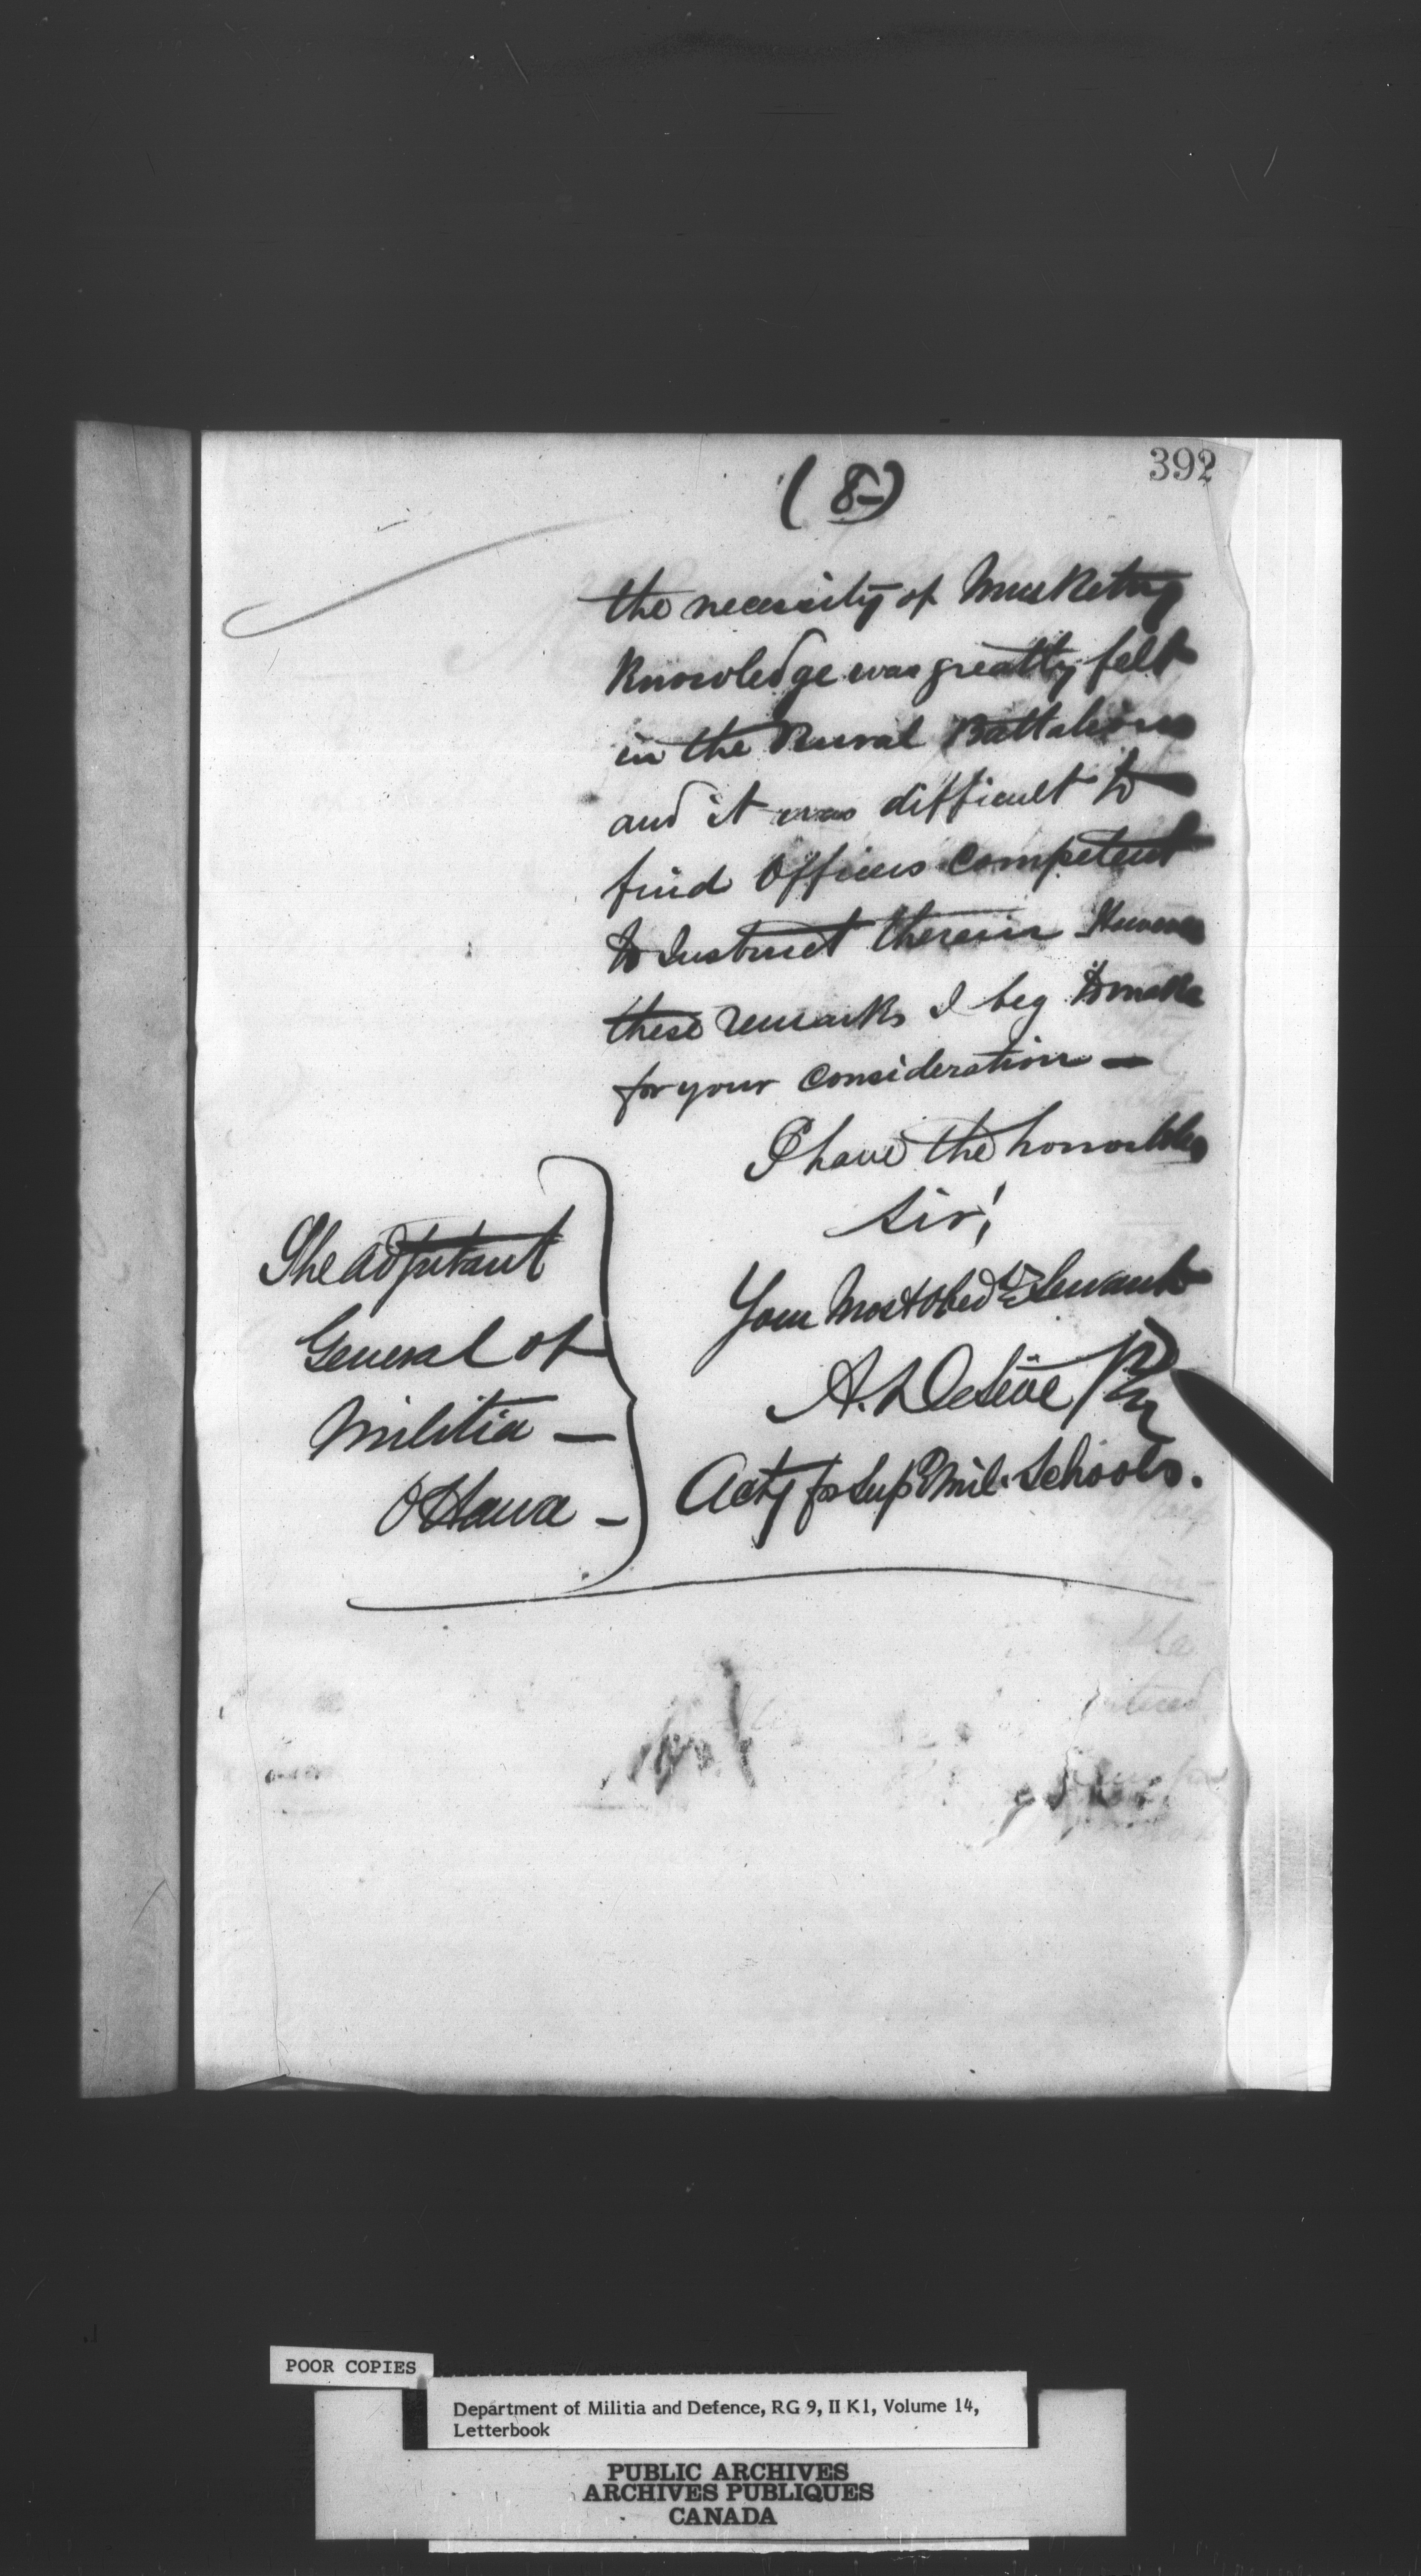 392
(8-)
the necessity of Musketry
Knowledge was greatly felt
in the Rural Battalions
and it was difficult to
find Officers Competent
to Instruct therein However
these remarks I beg to make
for your Consideration —
I have the honor to be
Sir,
Your Most Obedt Servant
A. D
Actg for Supt Mil. Schools.
The Adjutant
General of
Militia —
Ottawa —
POOR COPIES
Department of Militia and Defence, RG 9, II K1, Volume 14,
Letterbook
PUBLIC ARCHIVES
ARCHIVES PUBLIQUES
CANADA